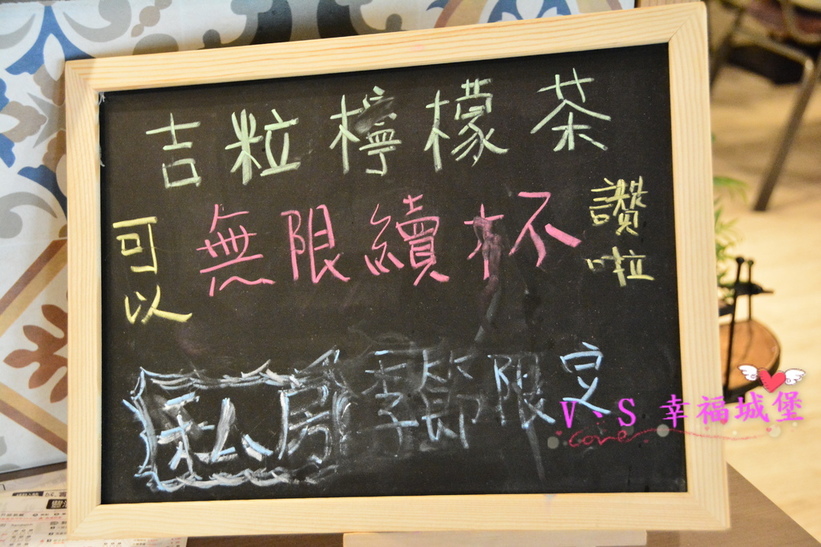 吉粒檸檬茶
可以 無限續杯 讚啦
私房 季節限定
V.S 幸福城堡
Love